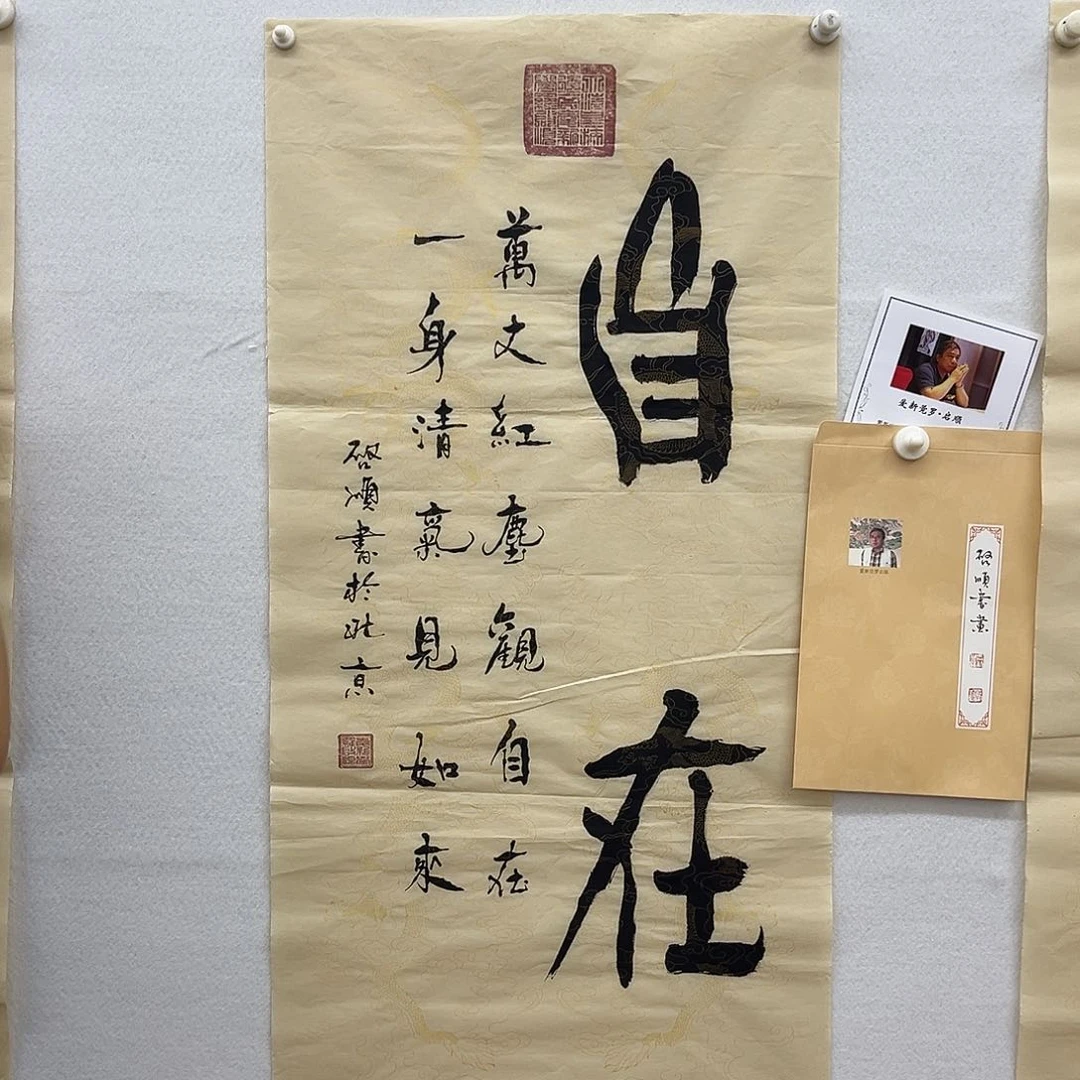 自在
萬丈紅塵觀自在
一身清氣見如來
啓順書於北京
爱新觉罗·启顺
啓順書畫